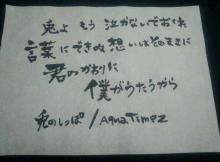 兎よ もう 泣かないでおくれ
言葉にできぬ想いはそのままに
君のかわりに
僕がうたうから
兎のしっぽ/Aqua Timez